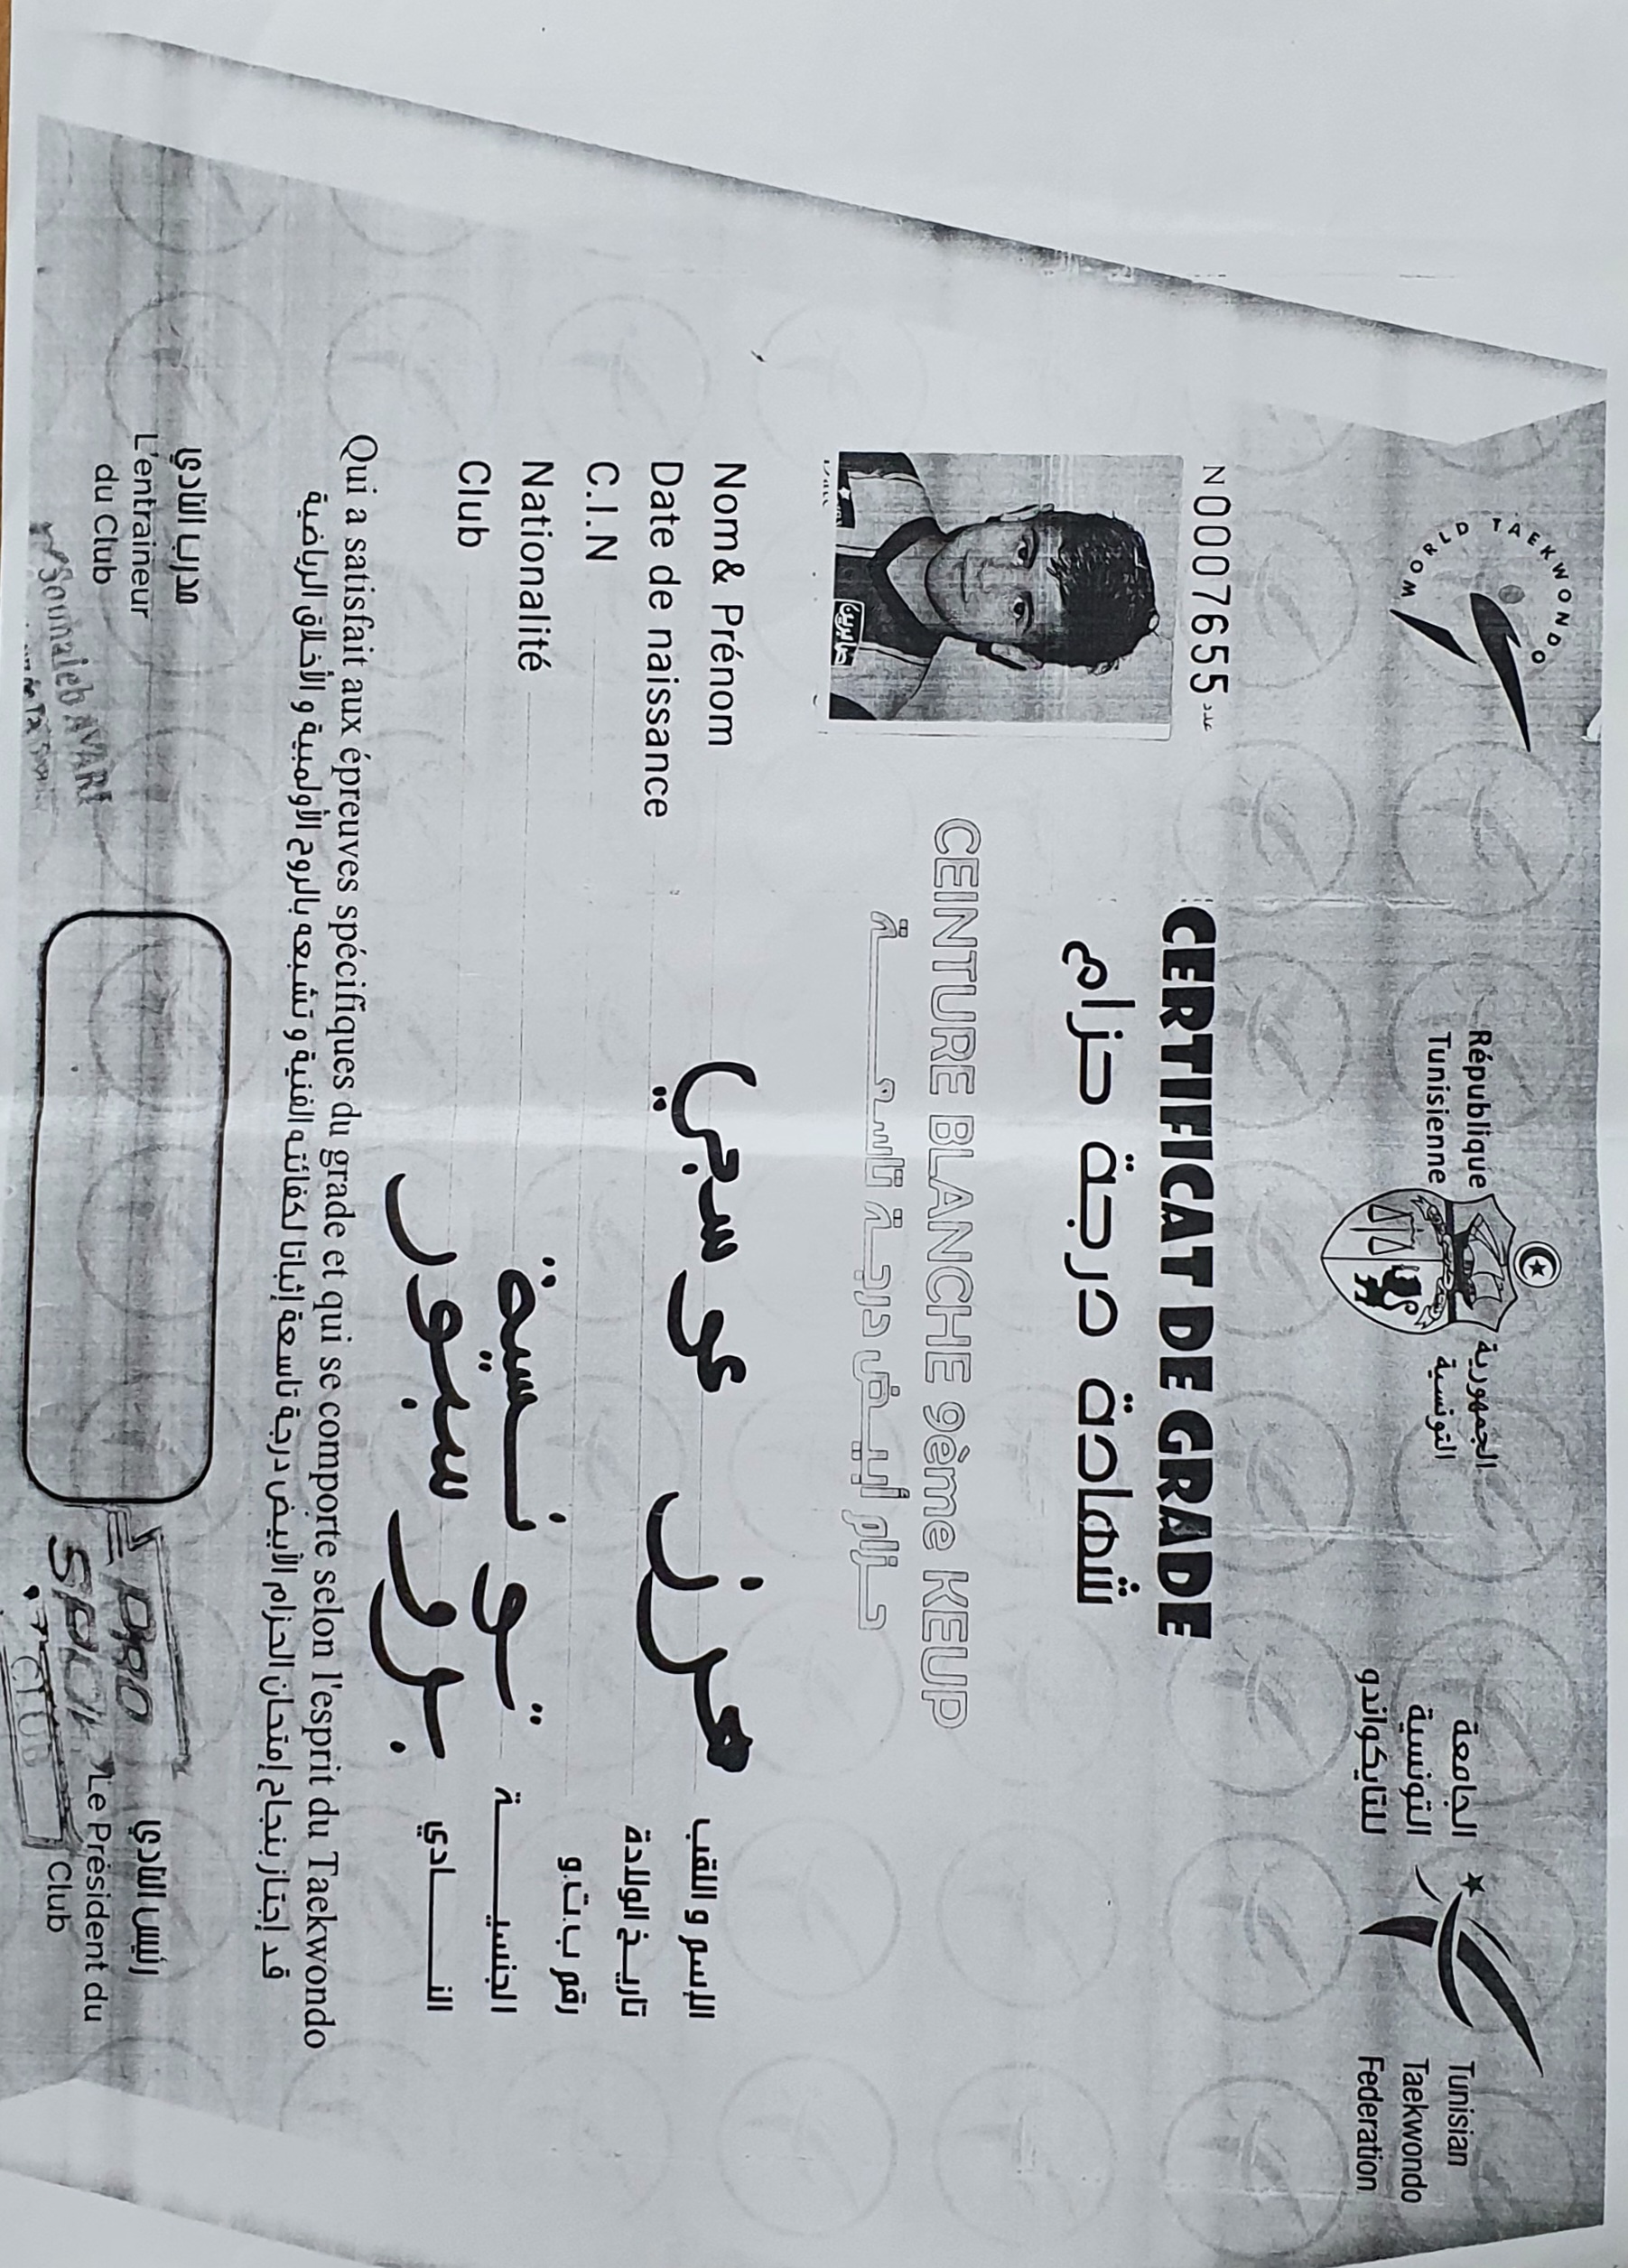 WORLD TAEKWONDO
République
Tunisienne
الجمهورية
التونسية
الجامعة
التونسية
للتايكواندو
Tunisian
Taekwondo
Federation
N 0007655 عدد
CERTIFICAT DE GRADE
شهادة درجة حزام
CEINTURE BLANCHE 9ème KEUP
حزام أبيض درجة تاسعة
Nom& Prénom محرز عوسجي الإسم و اللقب
Date de naissance تاريخ الولادة
C.I.N رقم ب.ت.و
Nationalité تونسية الجنسية
Club برو سبور النادي
Qui a satisfait aux épreuves spécifiques du grade et qui se comporte selon l'esprit du Taekwondo
قد إجتاز بنجاح إمتحان الحزام الأبيض درجة تاسعة إثباتا لكفائته الفنية و تشبعه بالروح الأولمبية و الأخلاق الرياضية
مدرب النادي
L'entraineur
du Club
رئيس النادي
Le Président du
Club
PRO